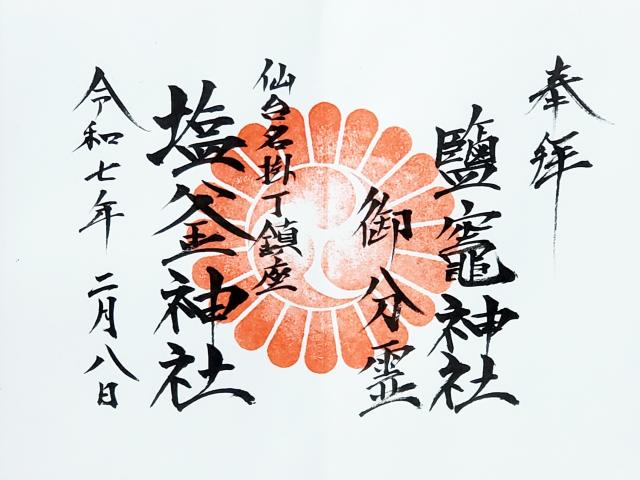 奉拜
鹽竈神社
御分霊
仙台名掛丁鎮座
塩釜神社
令和七年二月八日